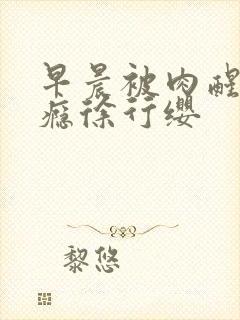 早晨被肉醒
瘾徐行缨
黎悠